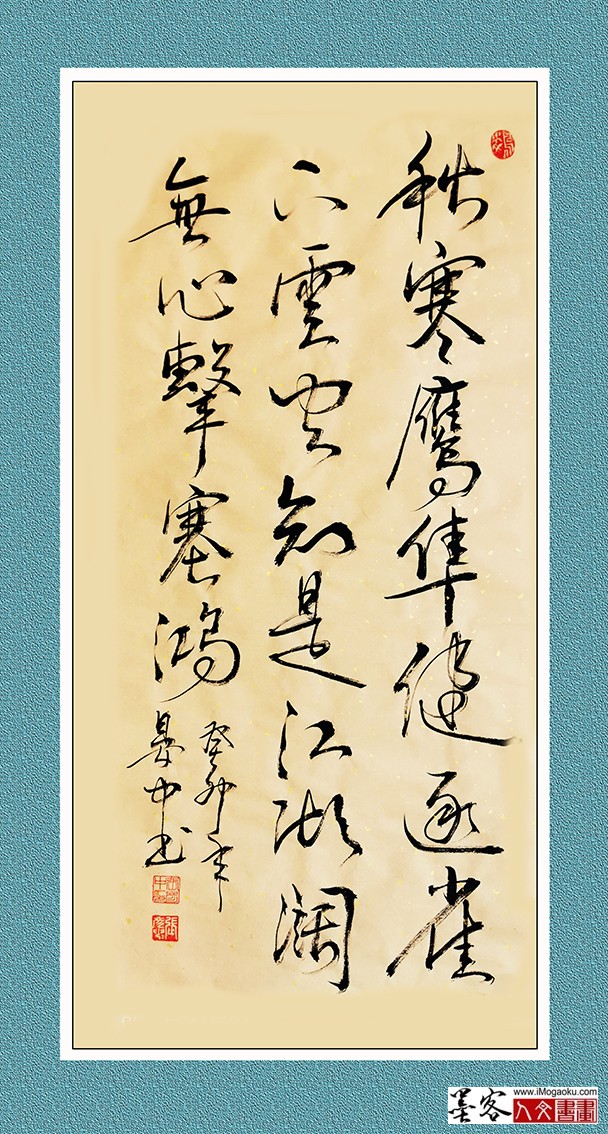 秋寒鷹隼健逐雀
下雲空知是江湖濶
無心擊塞鴻
癸卯年
中书
墨客
www.iMogaoku.com
人文書畫